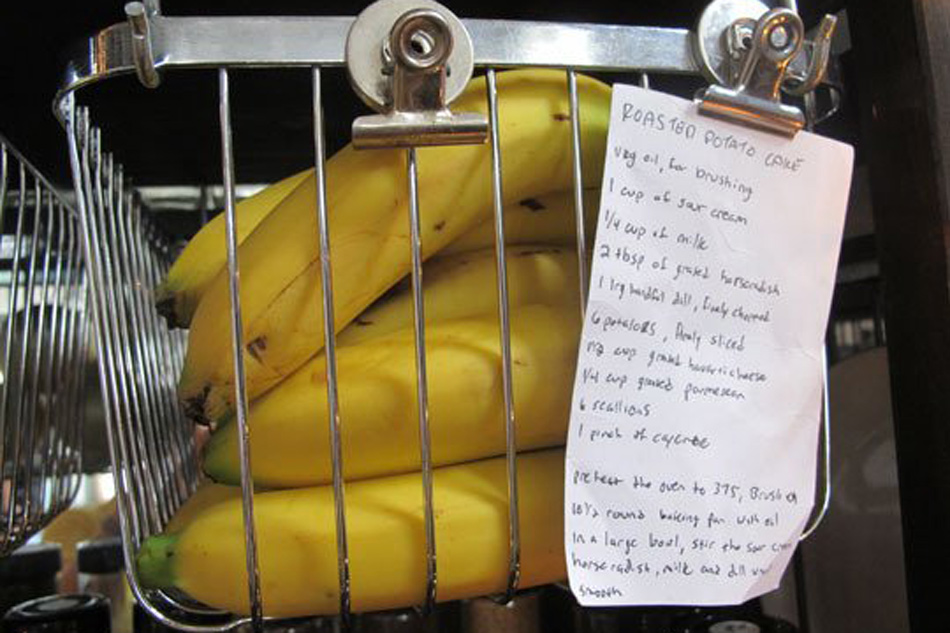 ROASTED POTATO CAKE
veg oil, for brushing
1 cup of sour cream
1/4 cup of milk
2 tbsp of grated horseradish
1 lrg handful dill, finely chopped
6 potatoes, finely sliced
1/2 cup grated havarti cheese
1/4 cup grated parmesean
6 scallions
1 pinch of cayenne
preheat the oven to 375, Brush
round baking pan with oil
In a large bowl, stir the sour
horseradish, milk and dill
smooth